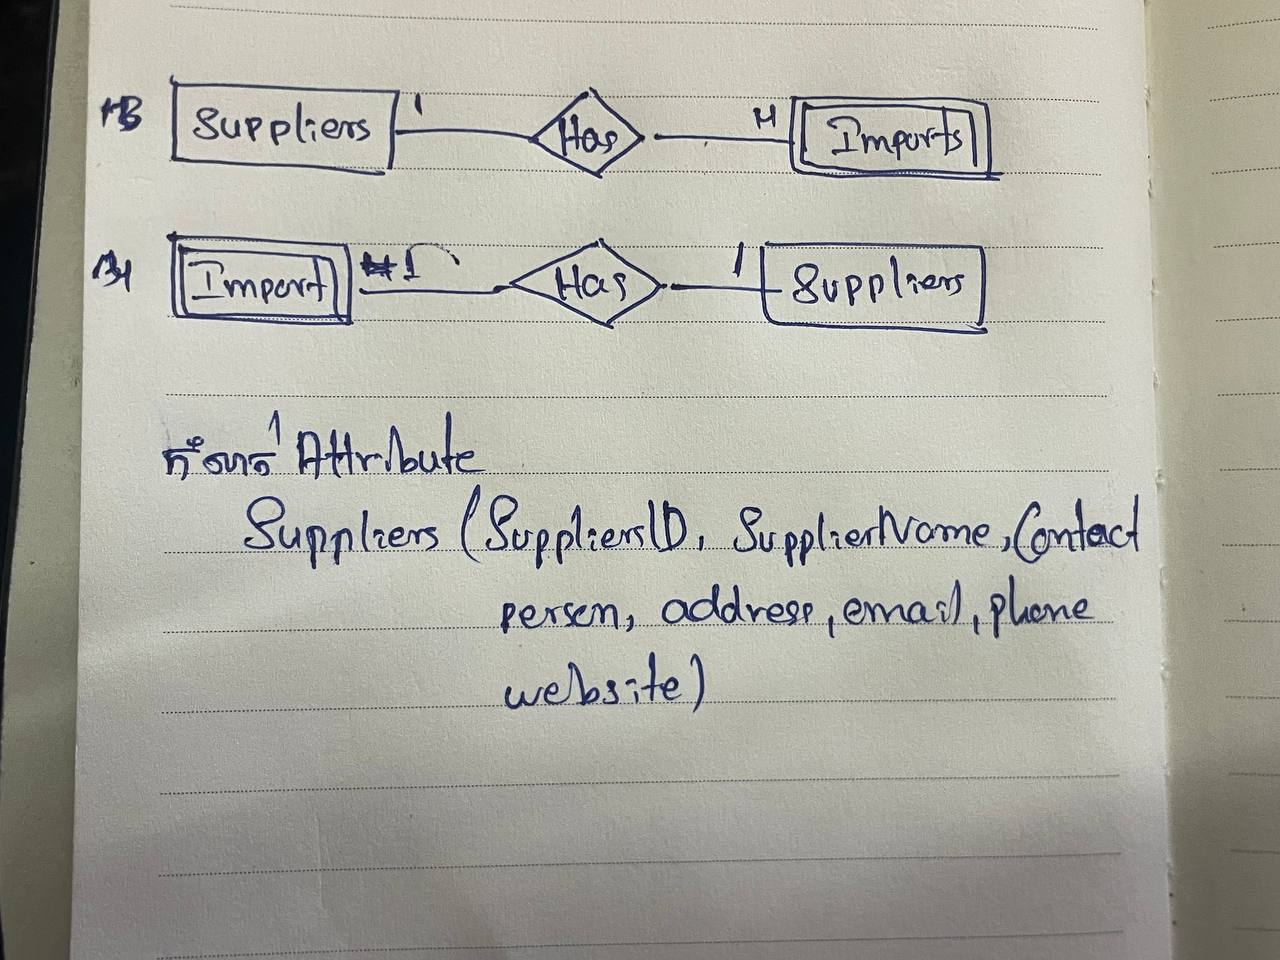 Suppliers 1 Has M Imports
Import 1 Has 1 Suppliers
Attribute
Suppliers (SuppliersID, SupplierName, Contact
person, address, email, phone
website)